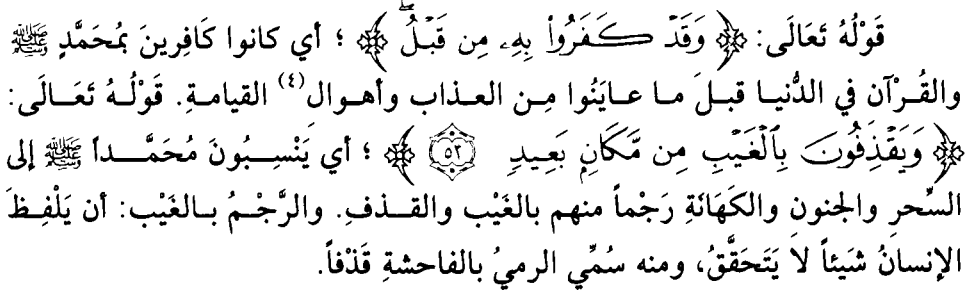 قَوْلُهُ تَعَالَى: ﴿ وَقَدْ كَفَرُواْ بِهِۦ مِن قَبْلُۖ ﴾ ؛ أي كانوا كَافِرينَ بمُحَمَّدٍ ﷺ
والقُرْآن في الدُّنيا قبلَ ما عايَنُوا مِن العذاب وأهوال(٤) القيامةِ. قَوْلُهُ تَعَالَى:
﴿ وَيَقْذِفُونَ بِٱلْغَيْبِ مِن مَّكَانٍۭ بَعِيدٍ ٥٣ ﴾ ؛ أي يَنْسِبُونَ مُحَمَّداً ﷺ إلى
السِّحرِ والجنون والكَهَانَةِ رَجْماً منهم بالغَيْب والقذفِ. والرَّجْمُ بالغَيْب: أن يَلْفِظَ
الإنسانُ شَيئاً لاَ يَتَحَقَّقُ، ومنه سُمِّي الرميُ بالفاحشةِ قَذْفاً.